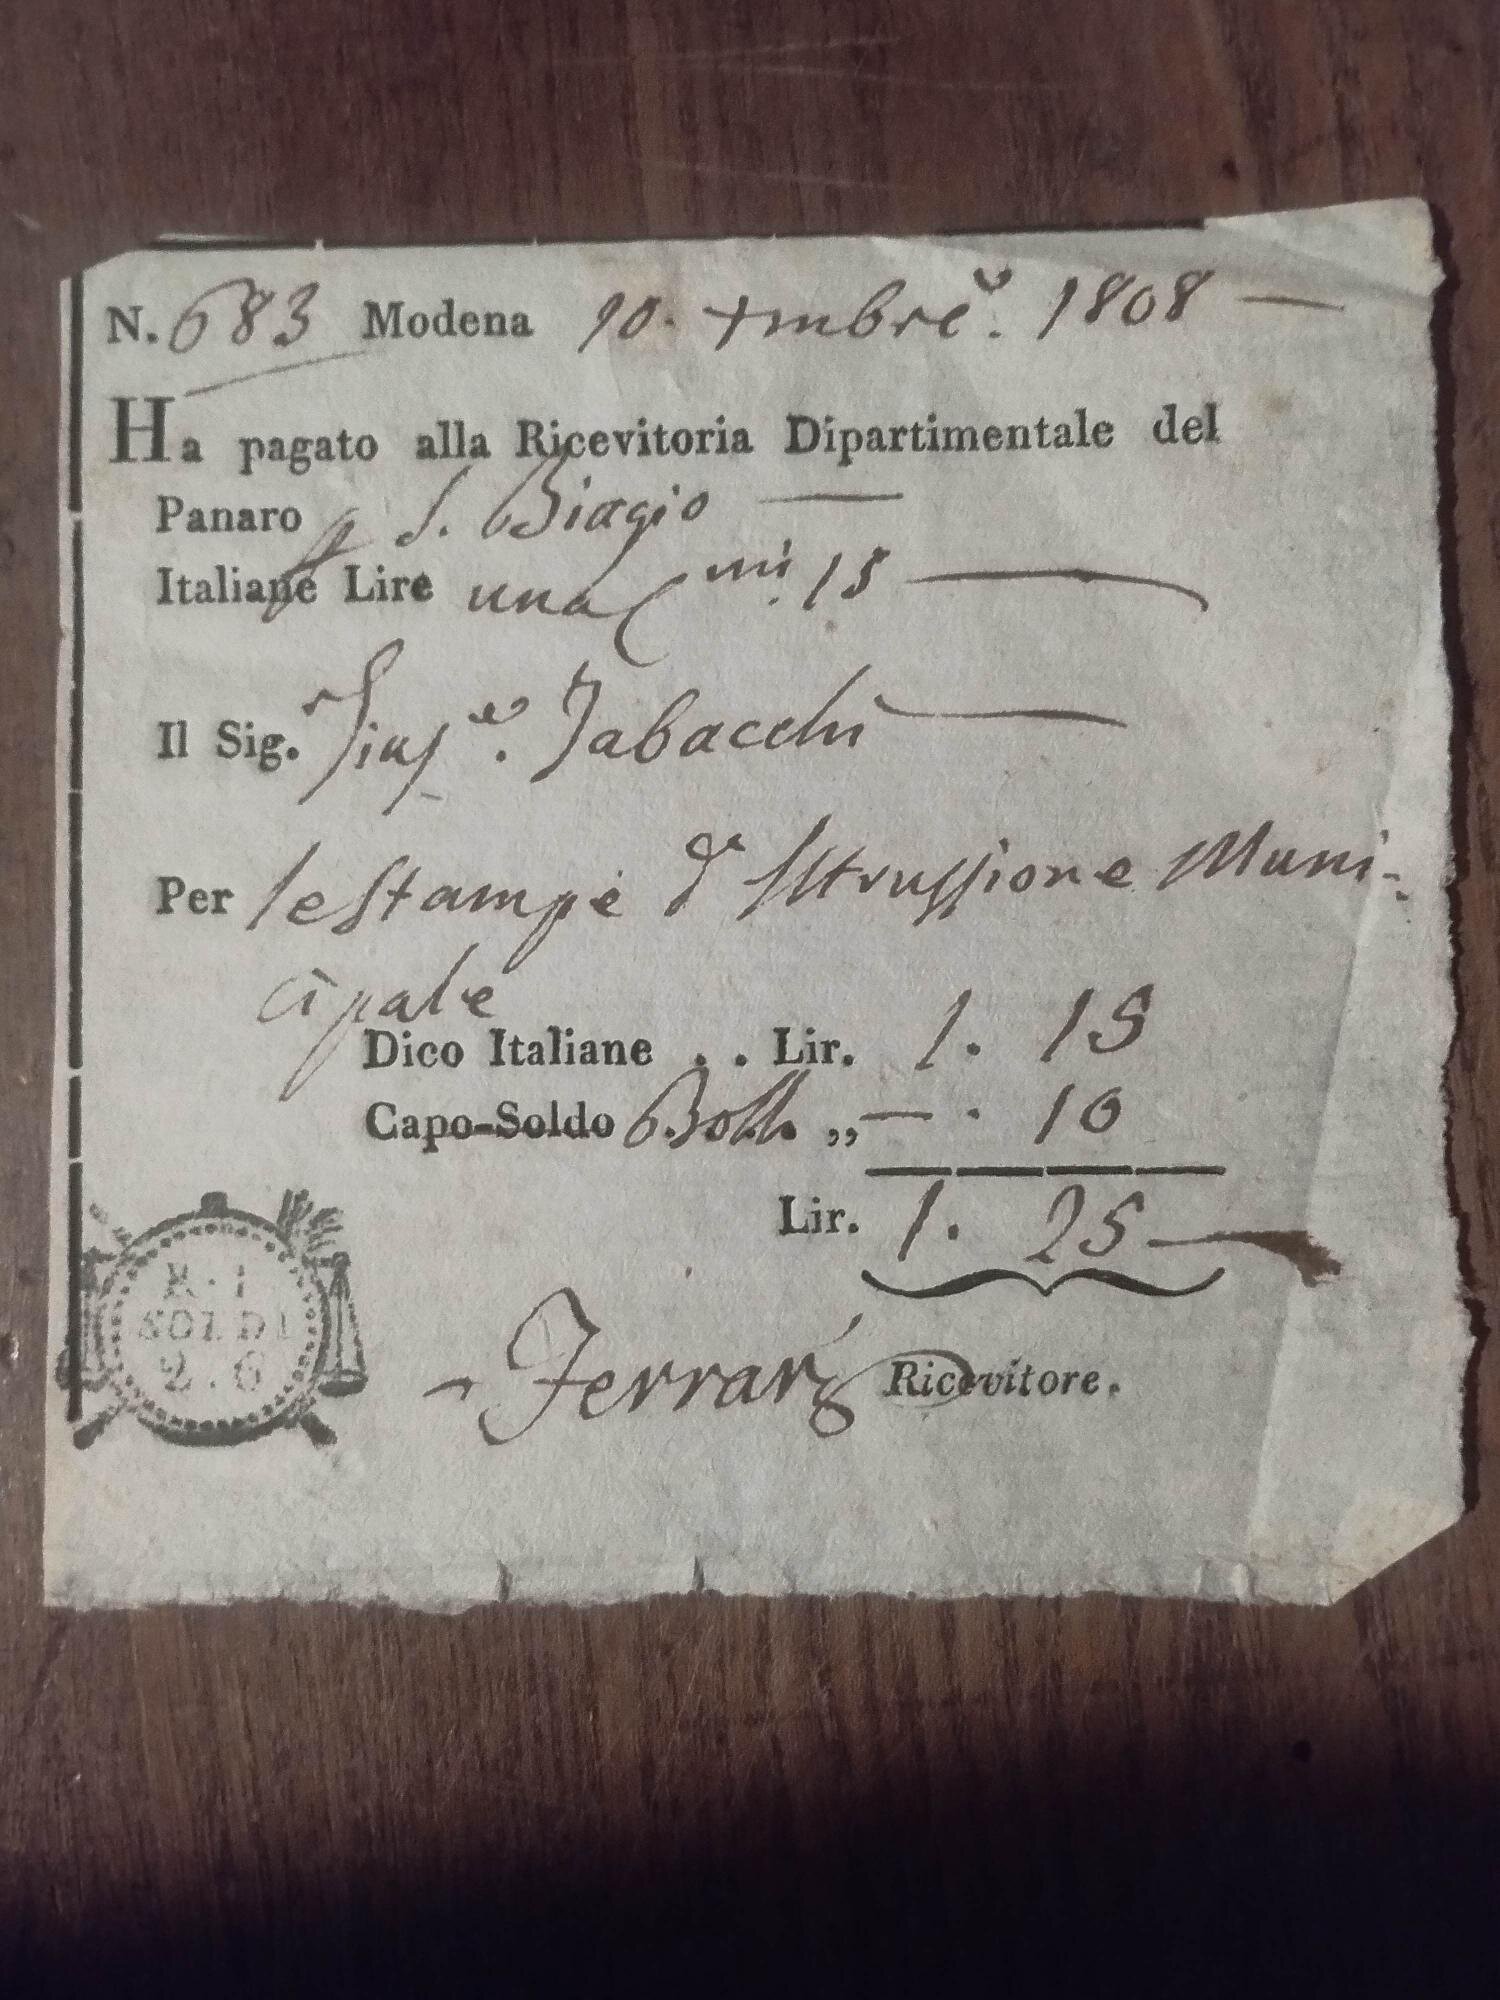 N. 683 Modena 10. Xmbre. 1808
Ha pagato alla Ricevitoria Dipartimentale del
Panaro p S. Biagio
Italiane Lire una Cmi. 15
Il Sig.r Gius.e Tabacchi
Per le Stampe d' Istrussione Muni-
cipale
Dico Italiane . . Lir. 1. 15
Capo-Soldo Boll. „ — . 10
Lir. 1. 25
Ferrari Ricevitore.
R. I
SOLDI
2. 6